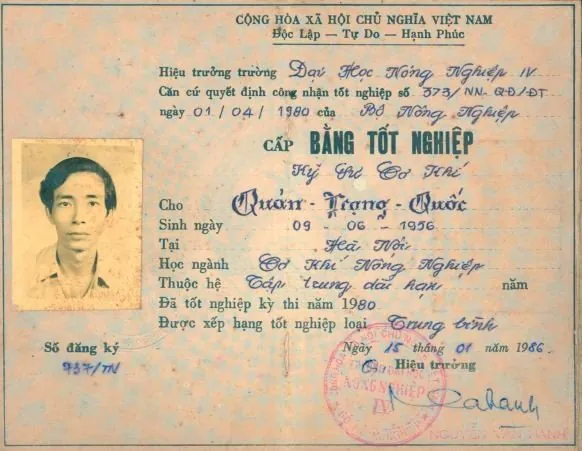 CỘNG HÒA XÃ HỘI CHỦ NGHĨA VIỆT NAM
Độc Lập — Tự Do — Hạnh Phúc
Hiệu trưởng trường Đại Học Nông Nghiệp IV
Căn cứ quyết định công nhận tốt nghiệp số 373/NN-QĐ/ĐT
ngày 01/04/1980 của Bộ Nông Nghiệp
CẤP BẰNG TỐT NGHIỆP
Kỹ Sư Cơ Khí
Cho Quản-Trọng-Quốc
Sinh ngày 09-06-1956
Tại Hà Nội
Học ngành Cơ Khí Nông Nghiệp
Thuộc hệ Tập trung dài hạn năm
Đã tốt nghiệp kỳ thi năm 1980
Được xếp hạng tốt nghiệp loại Trung bình
Số đăng ký
737/TN
Ngày 15 tháng 01 năm 1986.
Hiệu trưởng
NÔNG NGHIỆP
IV